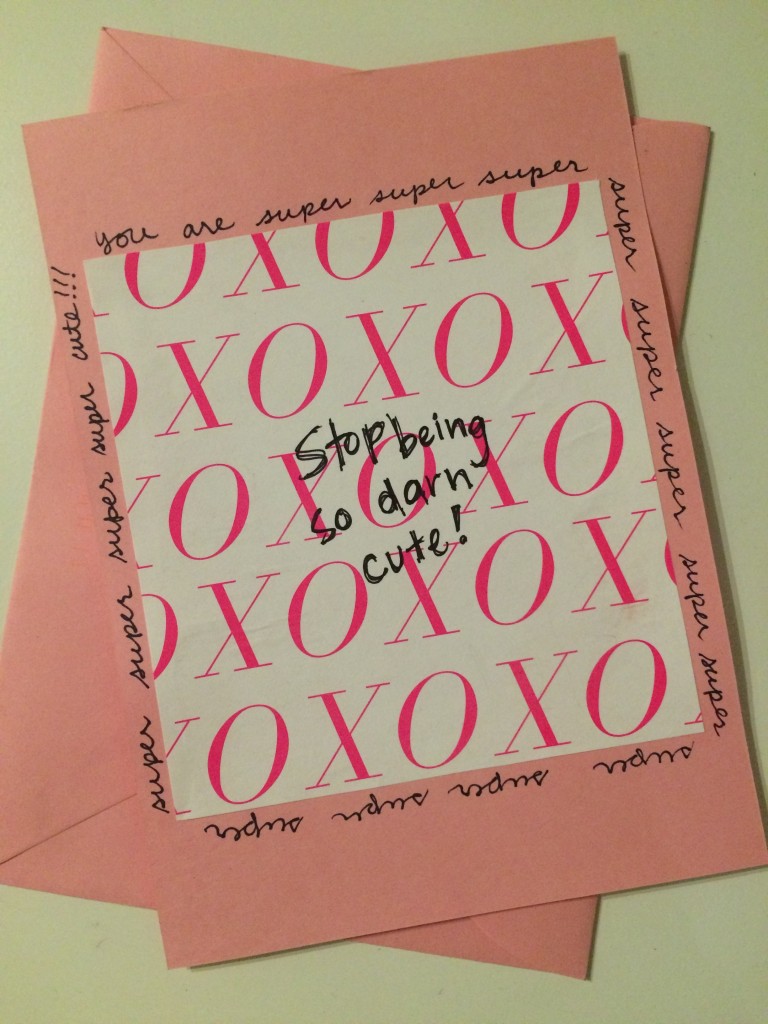 you are super super super
super super super super super
super super super super
super super super super cute!!!
OXOXO
OXOXOX
XOXOXO
OXOXOX
XOXOXO
Stop being
so darn
cute!